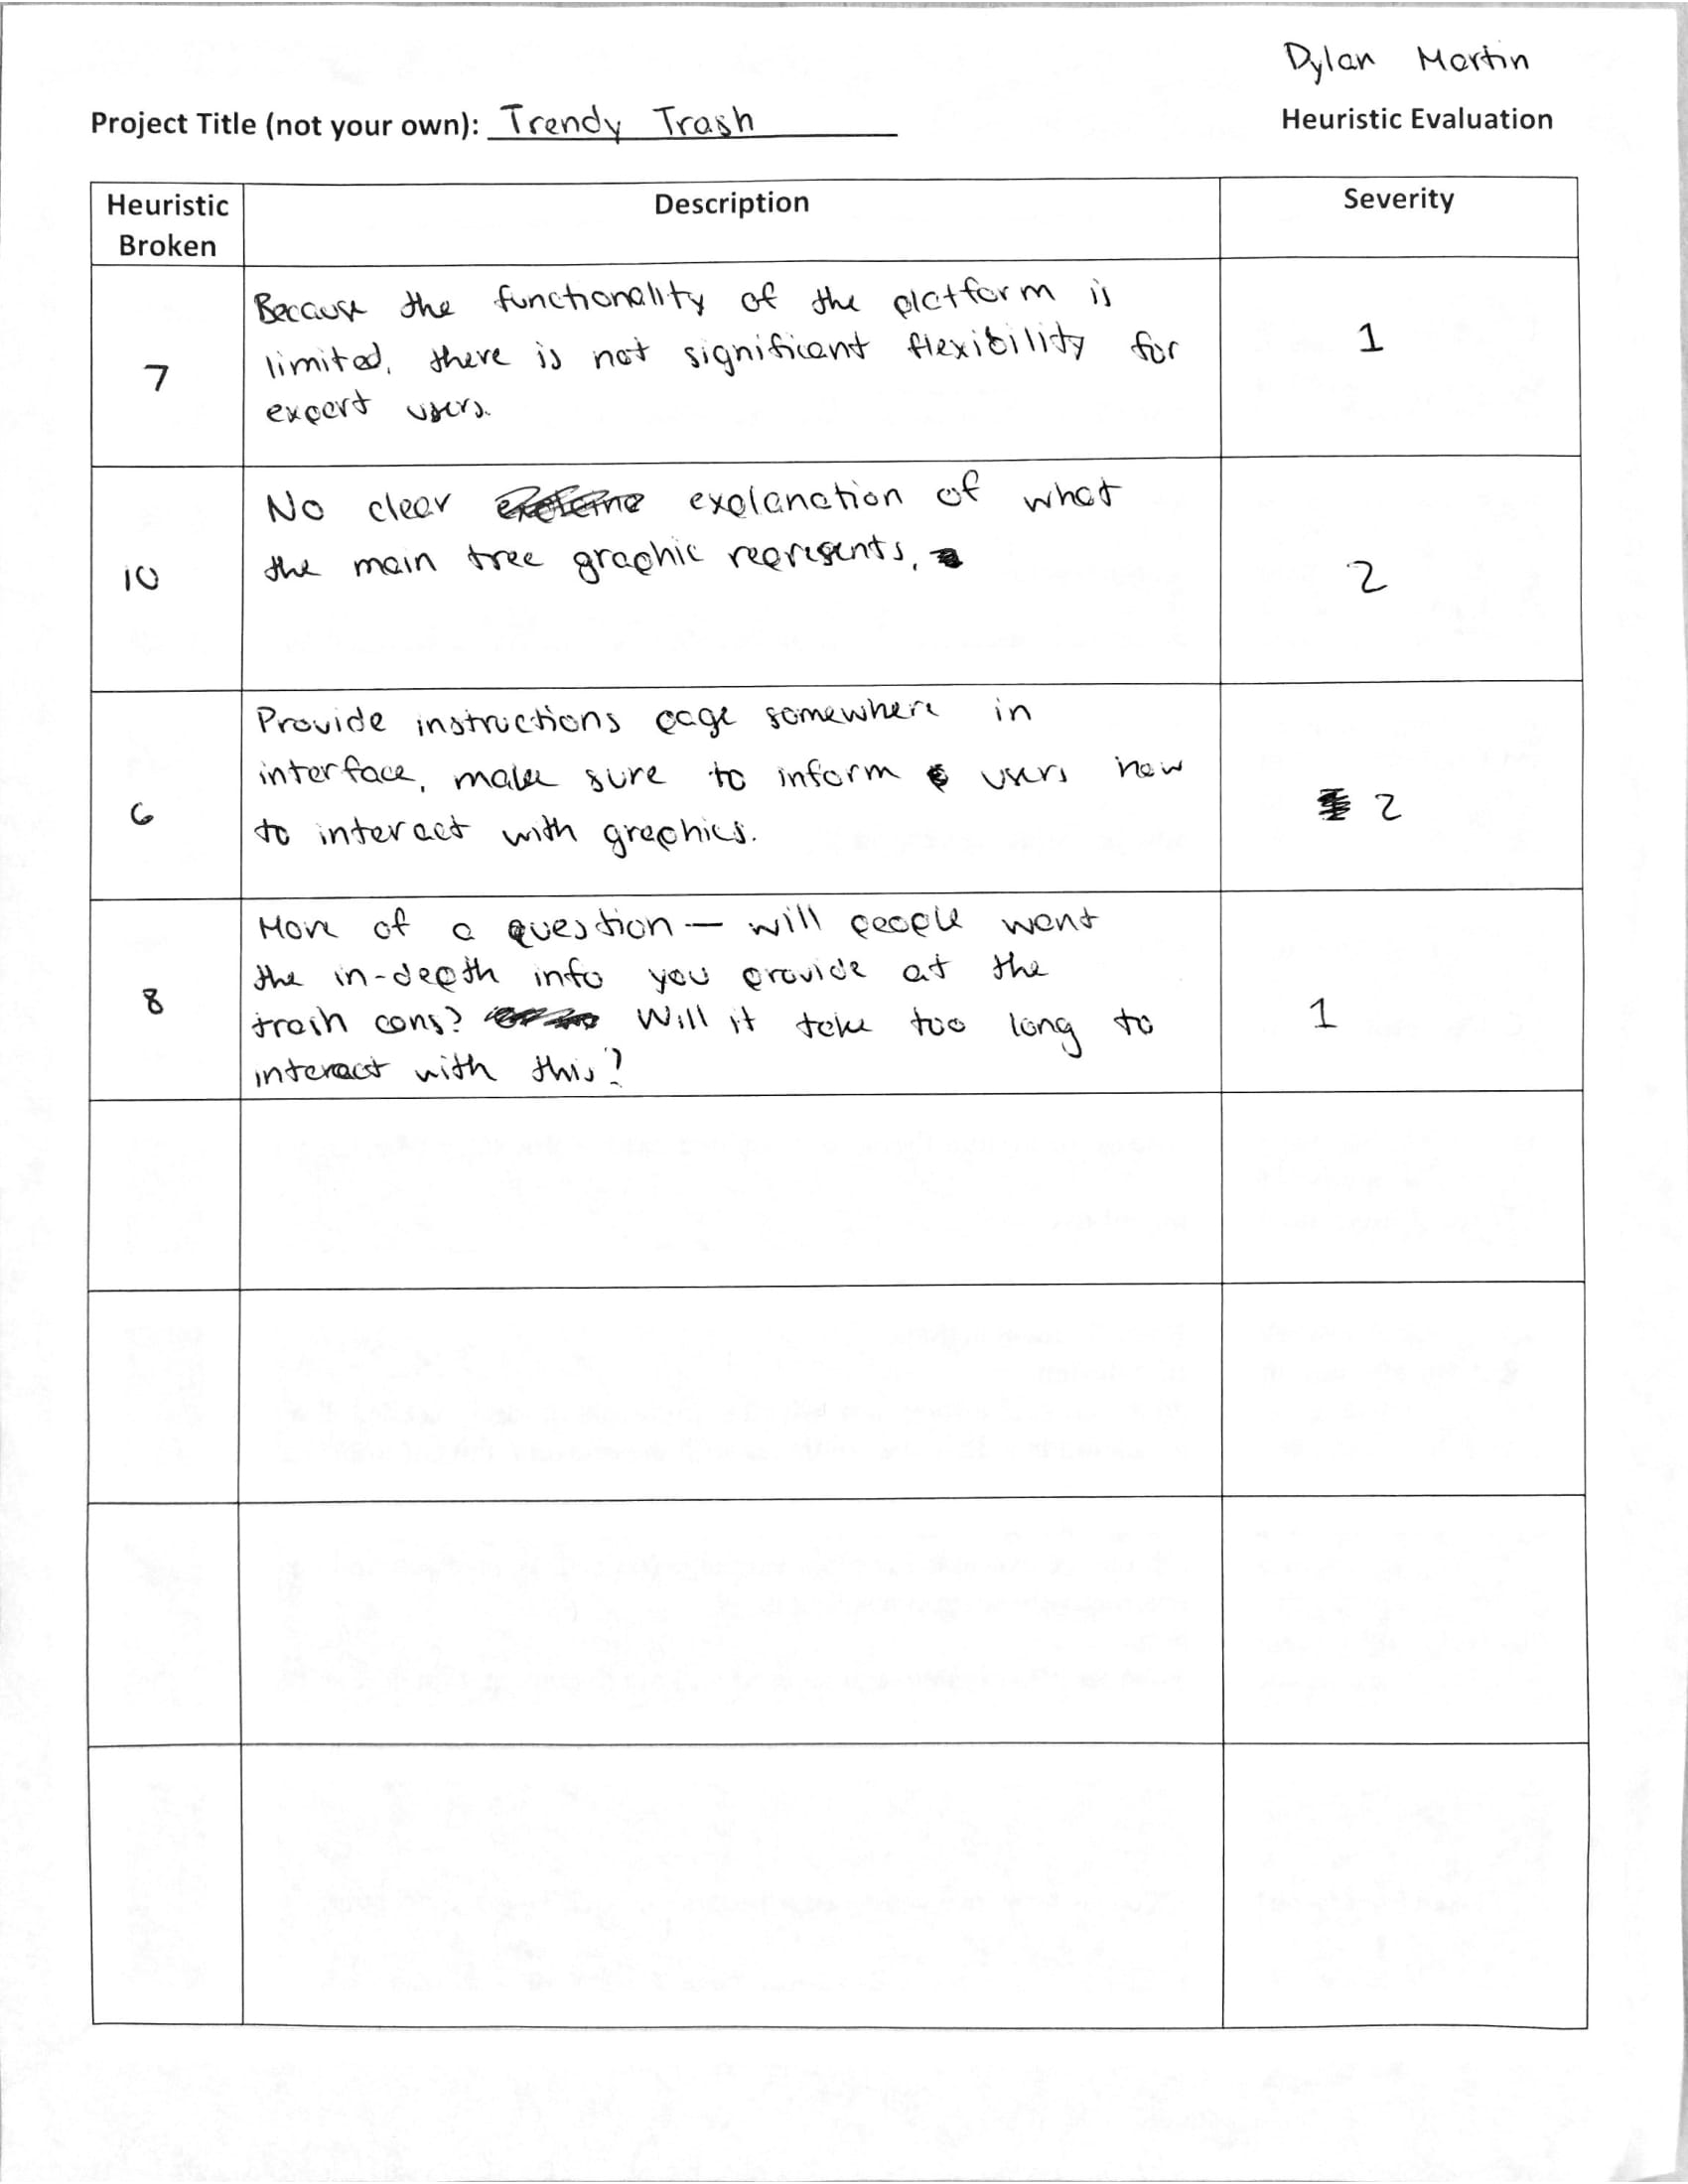 Dylan Martin
Project Title (not your own): Trendy Trash
Heuristic Evaluation
Heuristic Broken
Description
Severity
7
Because the functionality of the platform is
limited, there is not significant flexibility for
expert users.
1
10
No clear explanation of what
the main tree graphic represents.
2
6
Provide instructions page somewhere in
interface, make sure to inform users how
to interact with graphics.
2
8
More of a question — will people want
the in-depth info you provide at the
trash cans? Will it take too long to
interact with this?
1